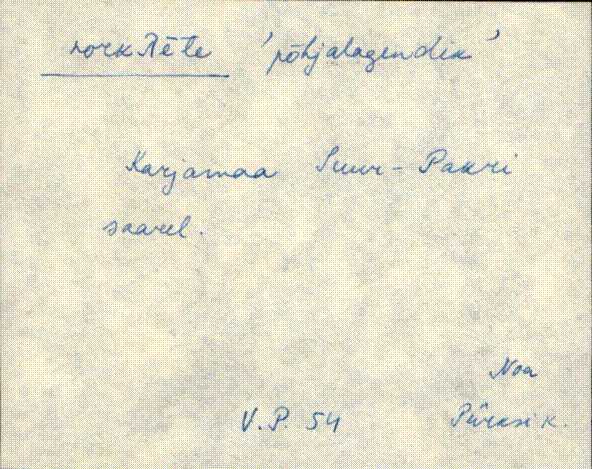 norkslēte 'põhjalagendik'
Karjamaa Suur-Pakri
saarel.
Noa
V.P. 54 Pürksi k.